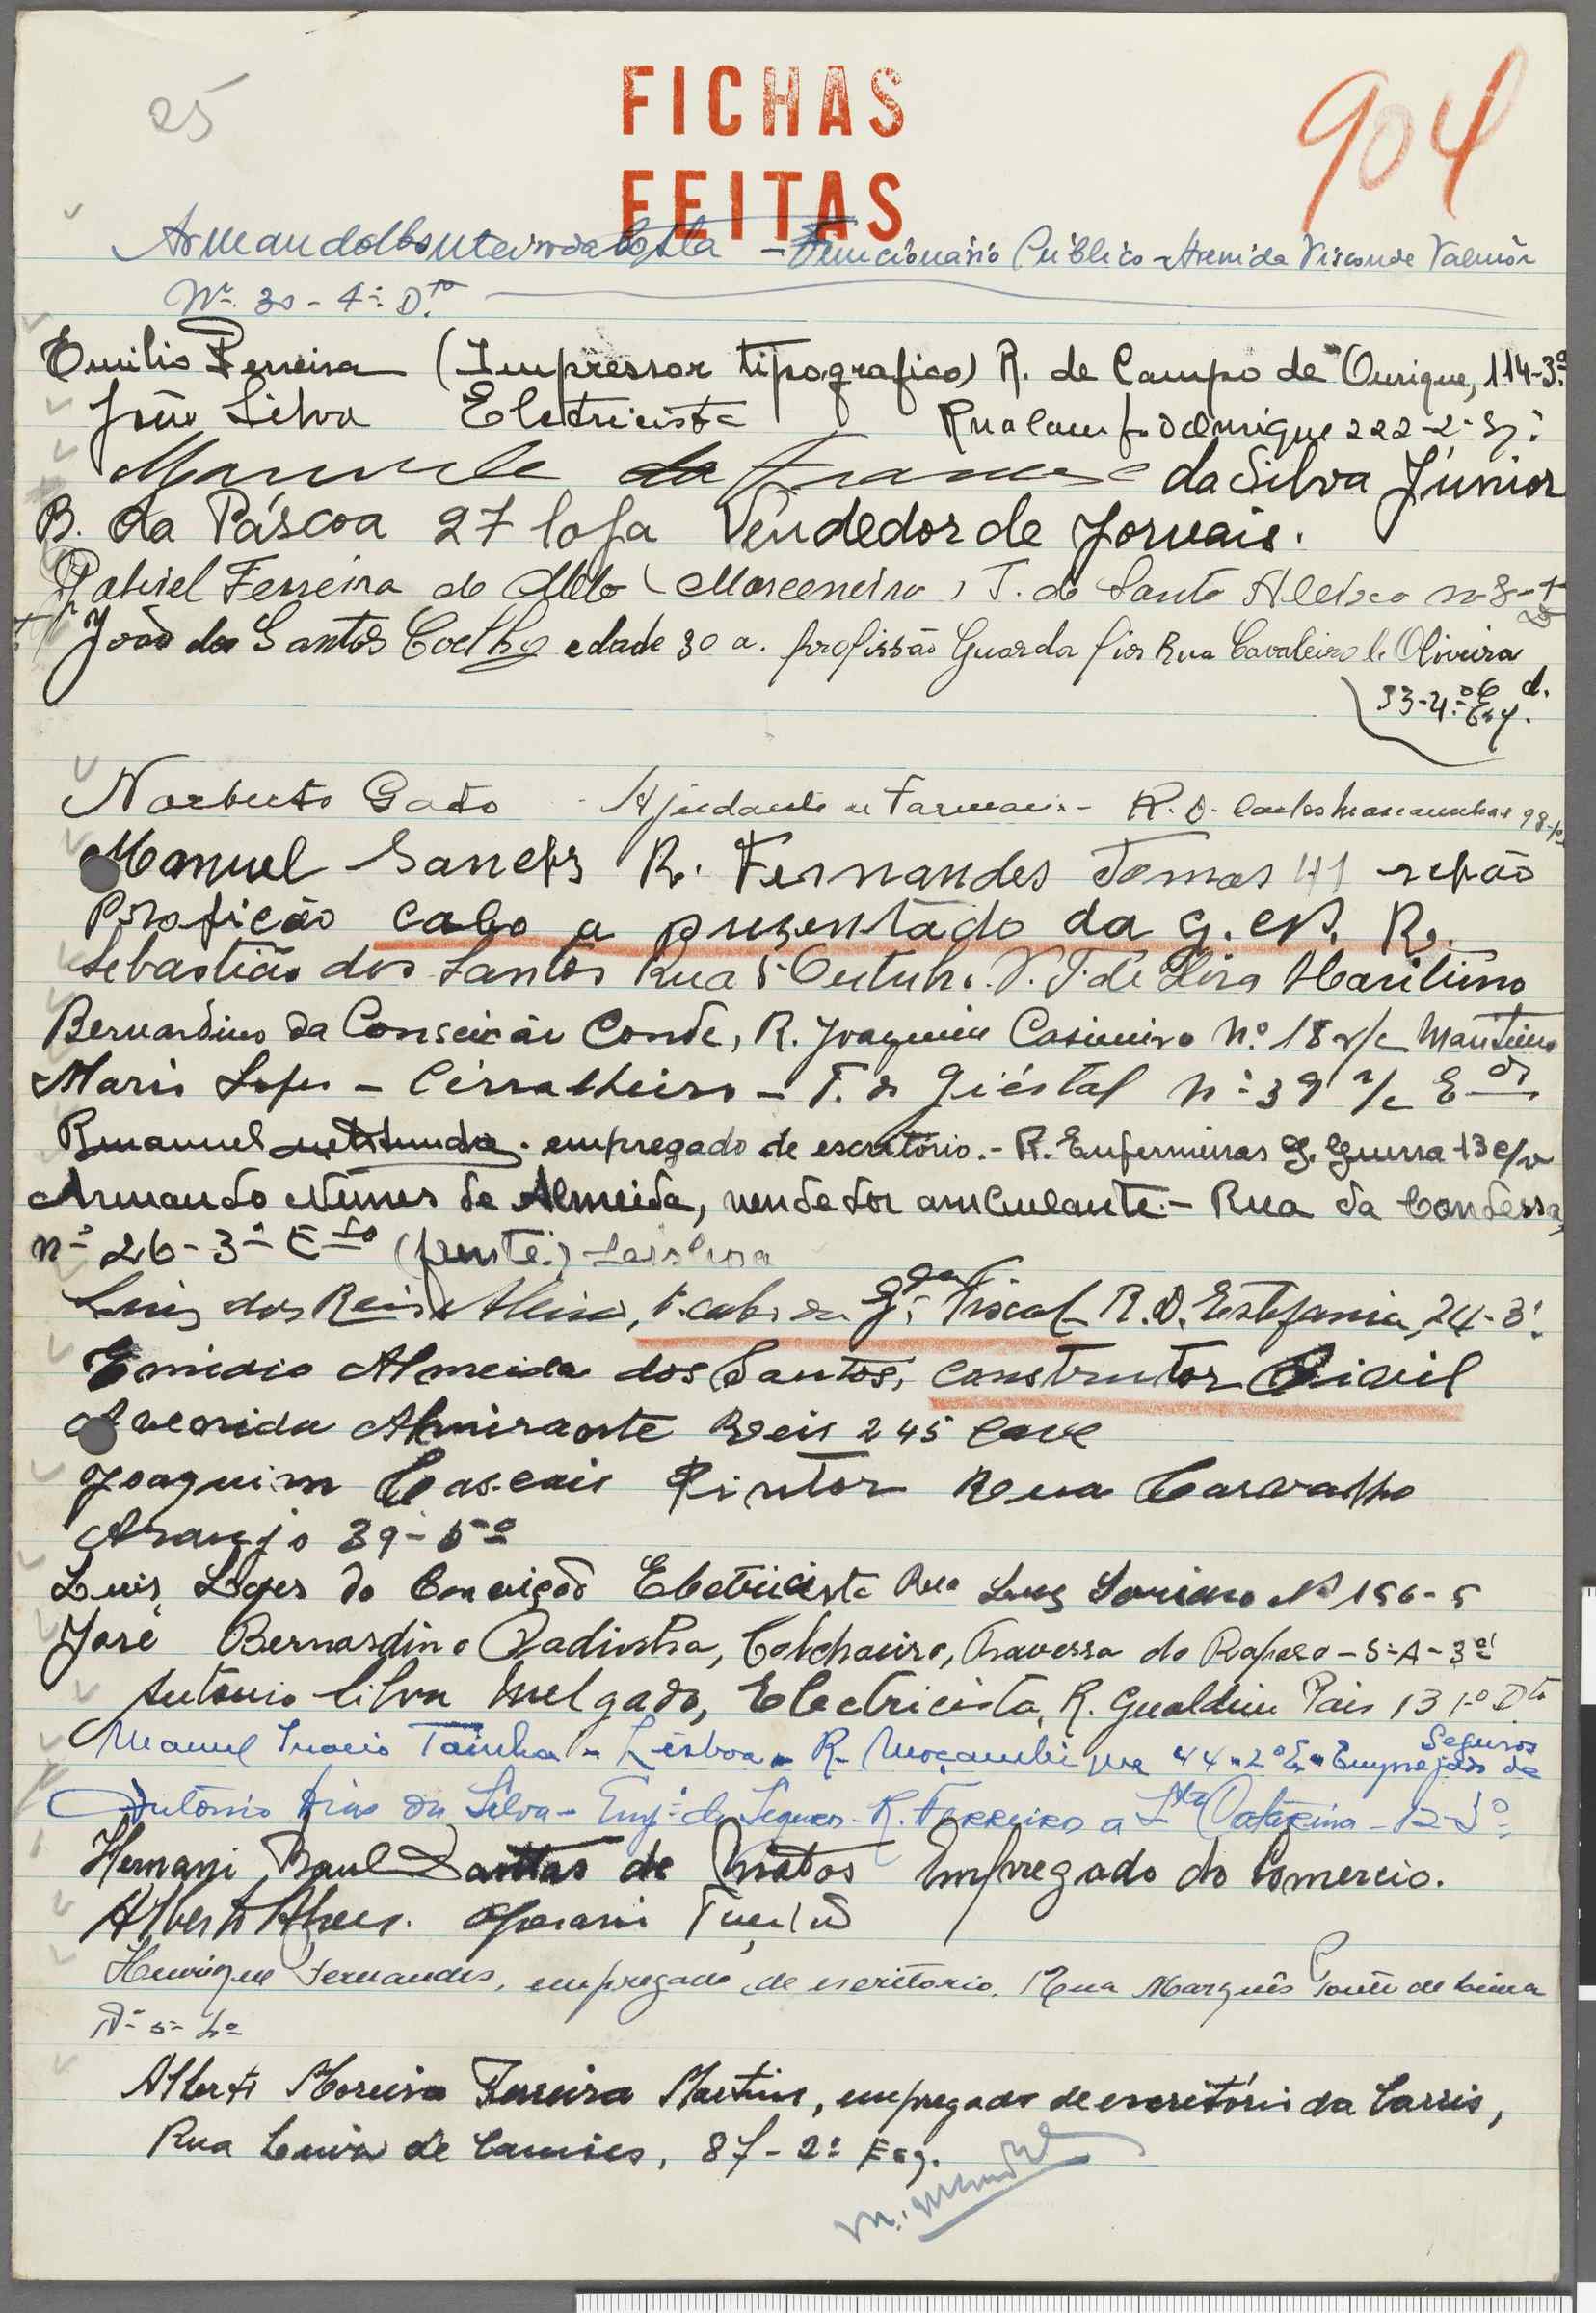 25
FICHAS
FEITAS
904
Armando Monteiro da Costa - Funcionário Público - Avenida Visconde Valmôr
Nº 30 - 4º. D.to
Emilio Ferreira (Impressor tipografico) R. de Campo de Ourique, 114-3º
João Silva Eletricista Rua Campo d'Ourique 222-2º Eq:
Manuel da Silva Júnior
B. da Páscoa 27 loja Vendedor de Jornais.
Gabriel Ferreira de Melo (Marceneiro) T. de Santo Aleixo nº 8-1
João dos Santos Coelho edade 30 a. profissão Guarda fios Rua Cavaleiro d. Oliveira
33-4.º Esq.
Norberto Gato - Ajudante de Farmacia - R. D. Carlos Mascarenhas 98
Manuel Sanches R. Fernandes Tomas 41
Proficão cabo a presentado da G. N. R.
Sebastião dos Santos Rua 5 Outub. Maritimo
Bernardino da Conseicão Conde, R. Joaquim Casimiro Nº 18 r/c Maritimo
Mario Lopes - Cirralheiro - T. do Giéstal Nº 39 r/c
empregado de escritório. - R. Enfermeiras G. Guerra 13 c/v
Armando Nunes de Almeida, vendedor ambulante. - Rua da Condessa,
nº 26-3º E (frente) Lisboa
Luiz dos Reis, 1º cabo da Gda. Fiscal R. D. Estefania, 24-3º.
Emidio Almeida dos Santos, construtor Ciavil
Avenida Almirante Reis 245 cave
Joaquim Cascais Pintor Rua Carvalho
Araujo 39-5º
Luis Lopes da Eletricista Rua Luz Soriano Nº 156-5
José Bernardino Radinha, Colchoeiro, Travessa do Raposo - 5-A-3º
Antonio Silva Melgado, Electricista, R. Gualdim Pais 13 1º Dto
Manuel Inacio Tainha - Lisboa - R. Moçambique 44-2º E - Empregado de Seguros
António Dias da Silva - Empº de Seguros - R. Ferreiros a Sta Catarina - 12-3º
Hernani Raul Dantas de Matos Empregado do Comercio.
Alberto Alves. Operario
Henrique Fernandes, empregado de escritorio. Rua Marquês Ponte de Lima
Nº 5-4º
Alberto Moreira Ferreira Martins, empregado de escritório da Carris,
Rua Luiz de Camões, 87-2º Esq.